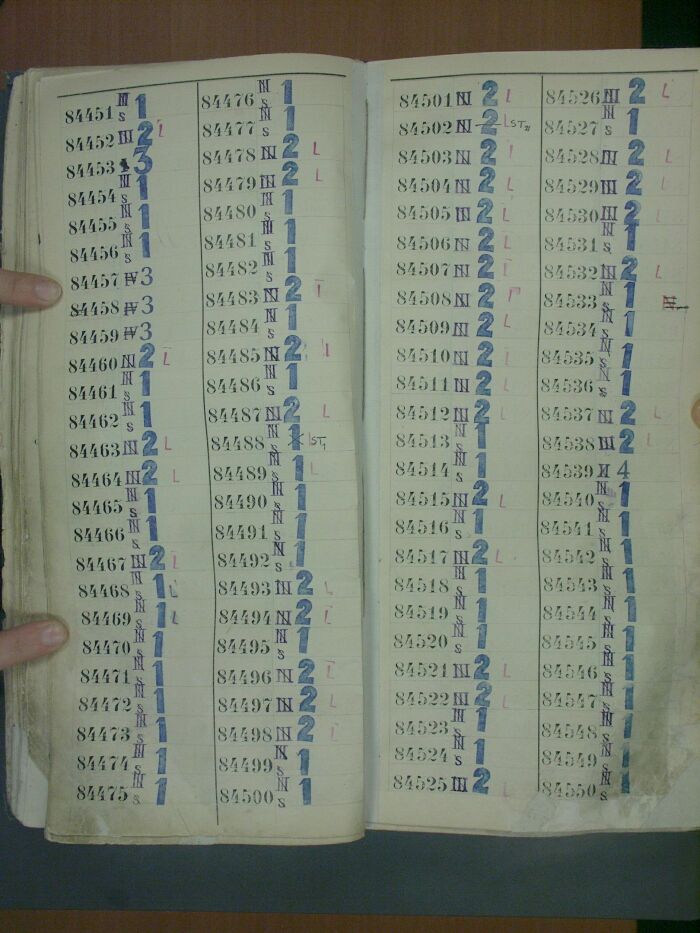 84451 N S 1
84452 III 2 L
84453 3
84454 N S 1
84455 N S 1
84456 N S 1
84457 IV 3
84458 IV 3
84459 IV 3
84460 III 2 L
84461 N S 1
84462 N S 1
84463 III 2 L
84464 III 2 L
84465 N S 1
84466 N S 1
84467 III 2 L
84468 N S 1 L
84469 N S 1 L
84470 N S 1
84471 N S 1
84472 N S 1
84473 N S 1
84474 N S 1
84475 N S 1
84476 N S 1
84477 N S 1
84478 III 2 L
84479 III 2 L
84480 N S 1
84481 N S 1
84482 N S 1
84483 III 2
84484 N S 1
84485 III 2
84486 N S 1
84487 III 2 L
84488 N S 1 ST,
84489 N S 1 L
84490 N S 1
84491 N S 1
84492 N S 1
84493 III 2 L
84494 III 2 L
84495 N S 1
84496 III 2 L
84497 III 2 L
84498 III 2 L
84499 N S 1
84500 N S 1
84501 III 2 L
84502 III 2 L ST
84503 III 2
84504 III 2 L
84505 III 2 L
84506 III 2 L
84507 III 2
84508 III 2
84509 III 2 L
84510 III 2 L
84511 III 2 L
84512 III 2 L
84513 N S 1
84514 N S 1
84515 III 2 L
84516 N S 1
84517 III 2 L
84518 N S 1
84519 N S 1
84520 N S 1
84521 III 2 L
84522 III 2 L
84523 N S 1
84524 N S 1
84525 III 2 L
84526 III 2 L
84527 N S 1
84528 III 2 L
84529 III 2 L
84530 III 2 L
84531 N S 1
84532 III 2 L
84533 N S 1
84534 N S 1
84535 N S 1
84536 N S 1
84537 III 2 L
84538 III 2 L
84539 II 4
84540 N S 1
84541 N S 1
84542 N S 1
84543 N S 1
84544 N S 1
84545 N S 1
84546 N S 1
84547 N S 1
84548 N S 1
84549 N S 1
84550 N S 1